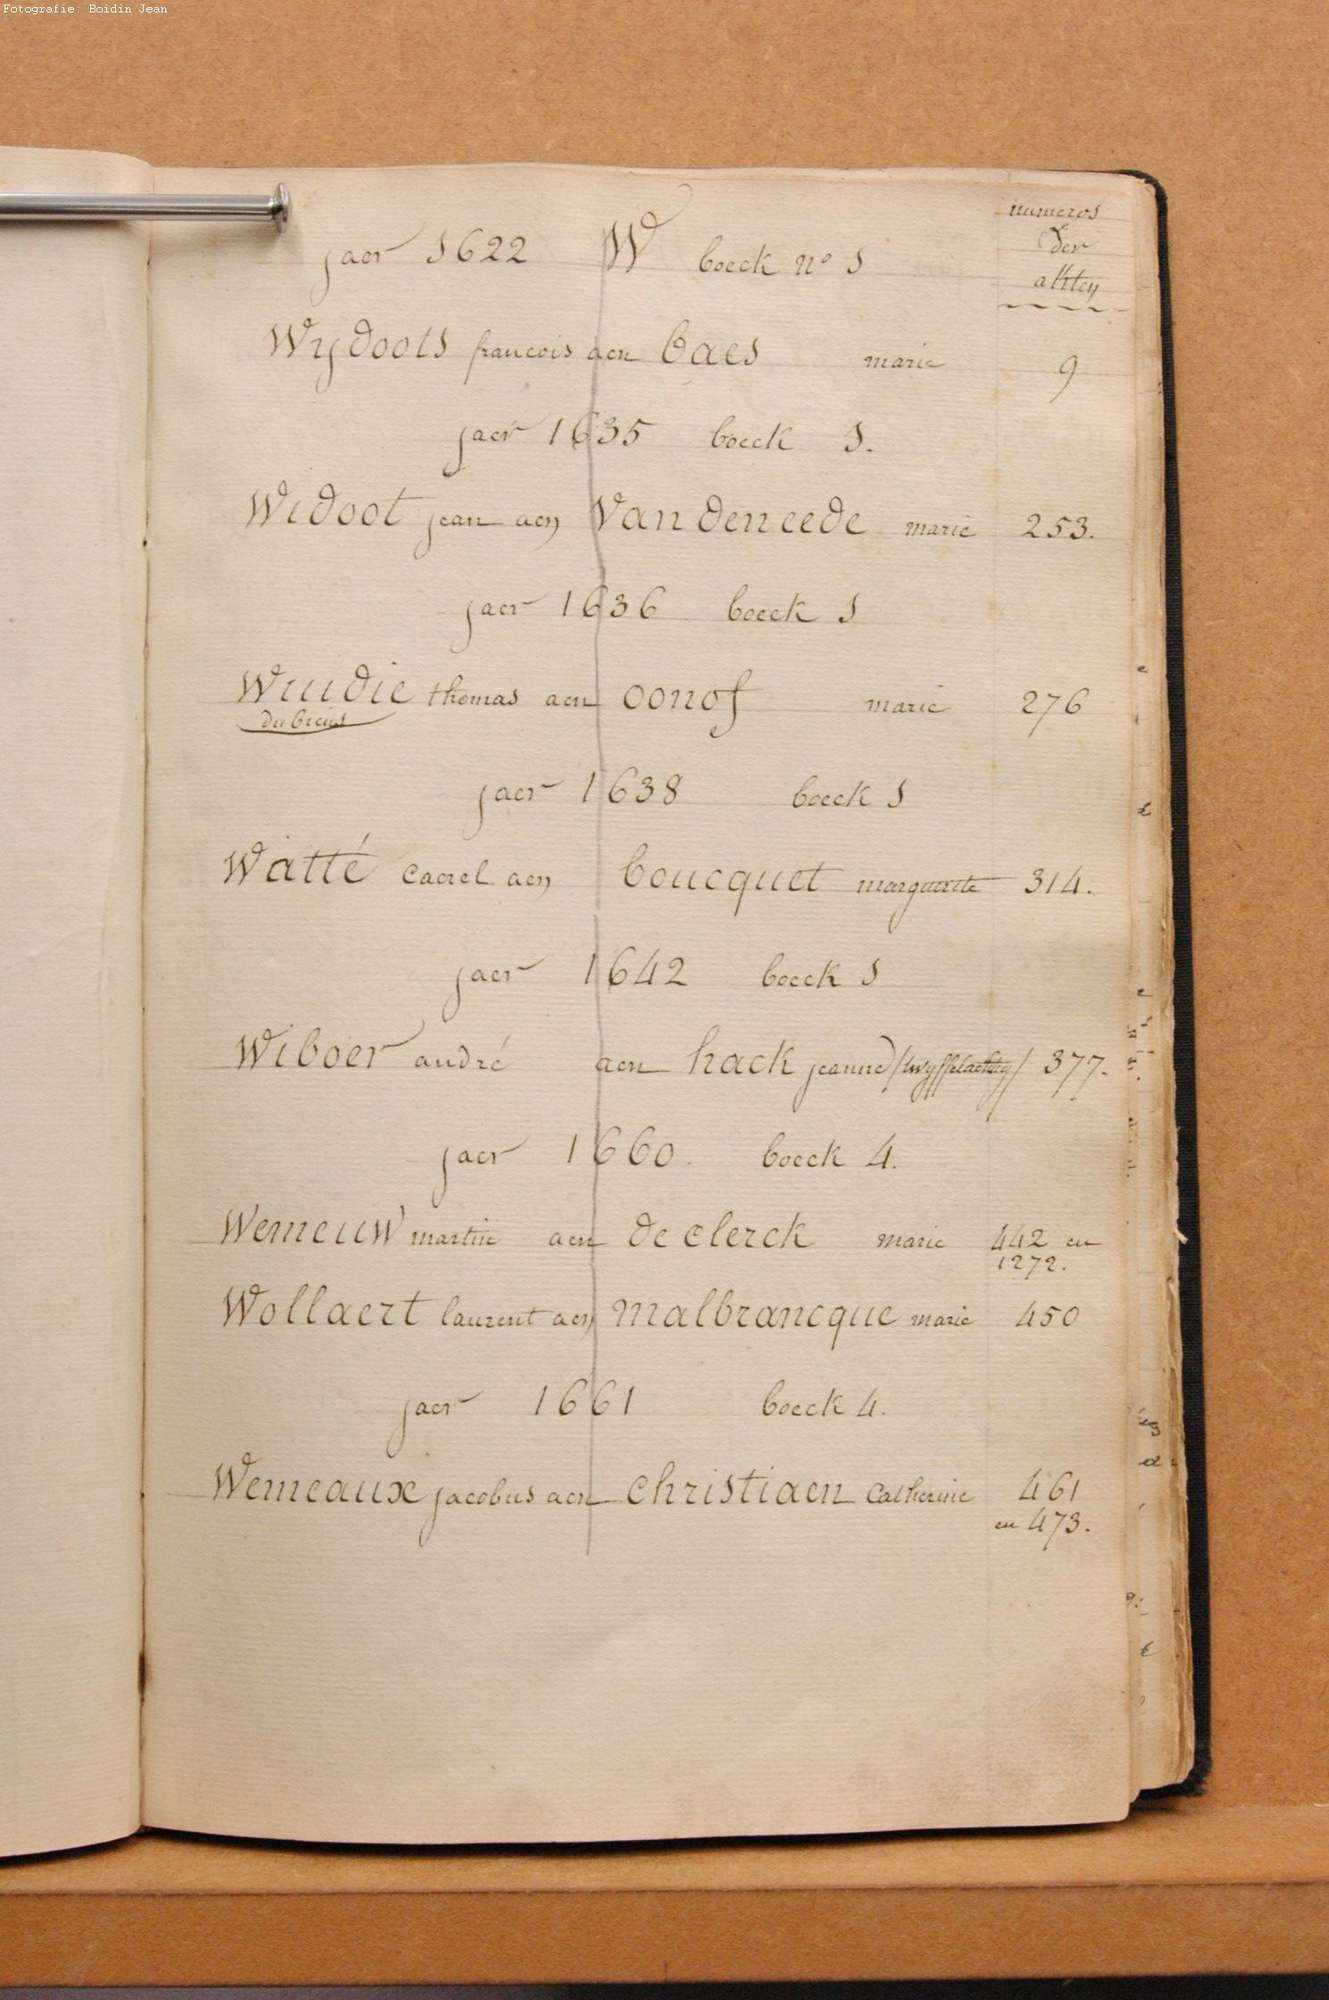 Fotografie: Boidin Jean
numeros
der
akten
jaer 1622 W boeck n° 1
Wydoots francois aen baes marie 9
jaer 1635 boeck 1.
Widoot jean aen Van den eede marie 253.
jaer 1636 boeck 1
thomas aen oonof marie 276
dubieus
jaer 1638 boeck 1
Watté Caerel aen boucquet marguerite 314.
jaer 1642 boeck 1
Wiboer andré aen hack jeanne 377.
jaer 1660. boeck 4.
Werneuw martin aen de clerck marie 442 en
1272.
Wollaert laurent aen malbrancque marie 450
jaer 1661 boeck 4.
Werneaux jacobus aen christiaen Catherine 461
en 473.